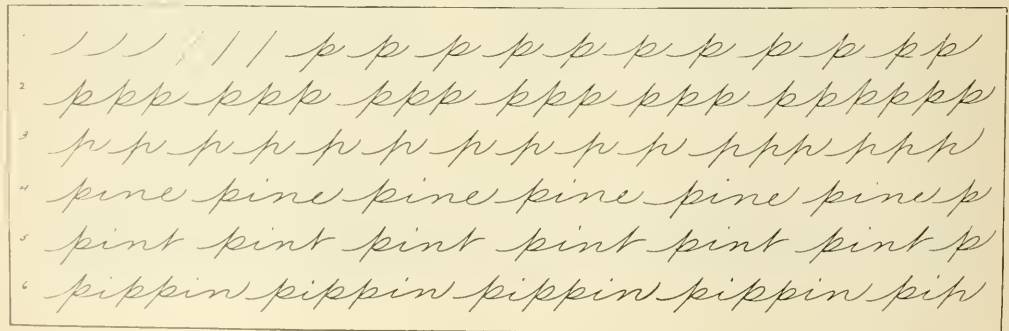 p p p p p p p p p pp
2 ppp ppp ppp ppp ppp pppppp
3 p p p p p p p p p p ppp ppp
4 pine pine pine pine pine pine p
5 pint pint pint pint pint pint p
6 pippin pippin pippin pippin pip